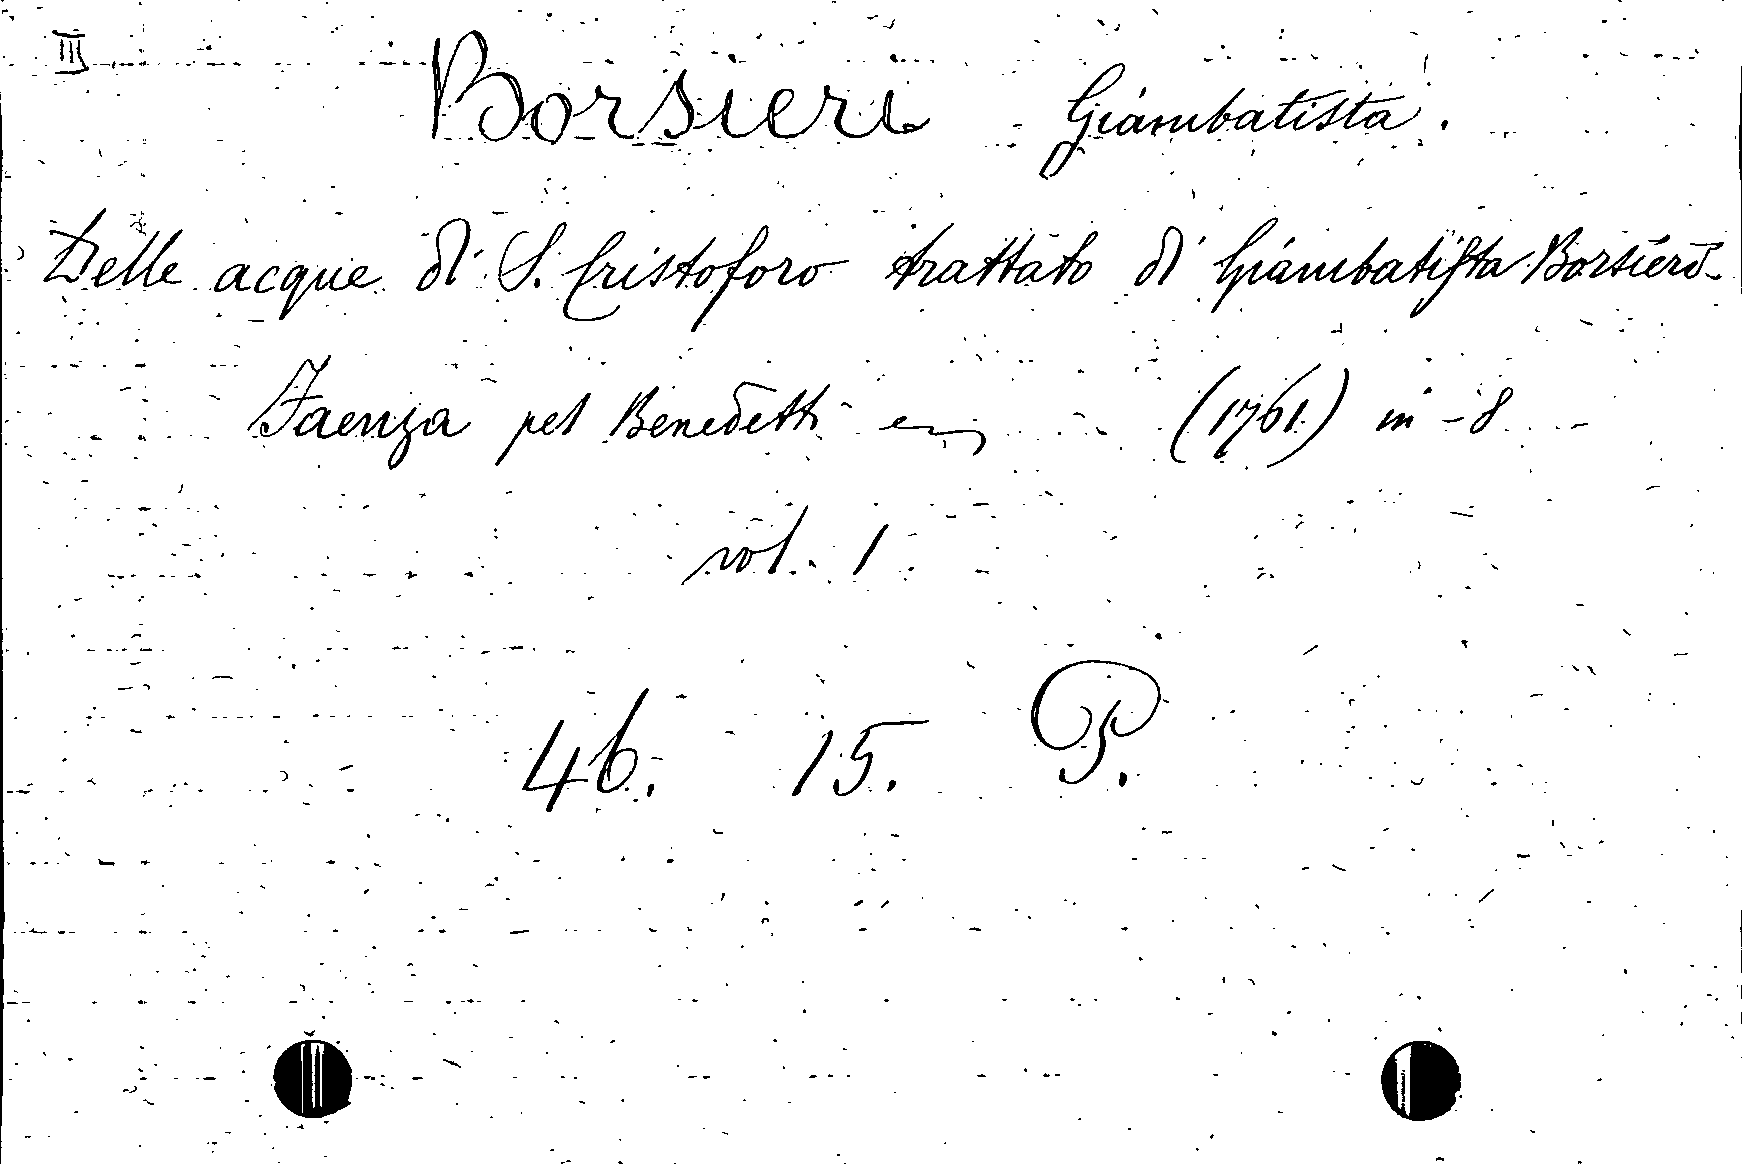 III
Borsieri Giambatista.
Delle acque di S. Cristoforo trattato di Giambatista Borsieri
Faenza pel Benedetti (1761) in-8
vol. 1
46. 15. P.